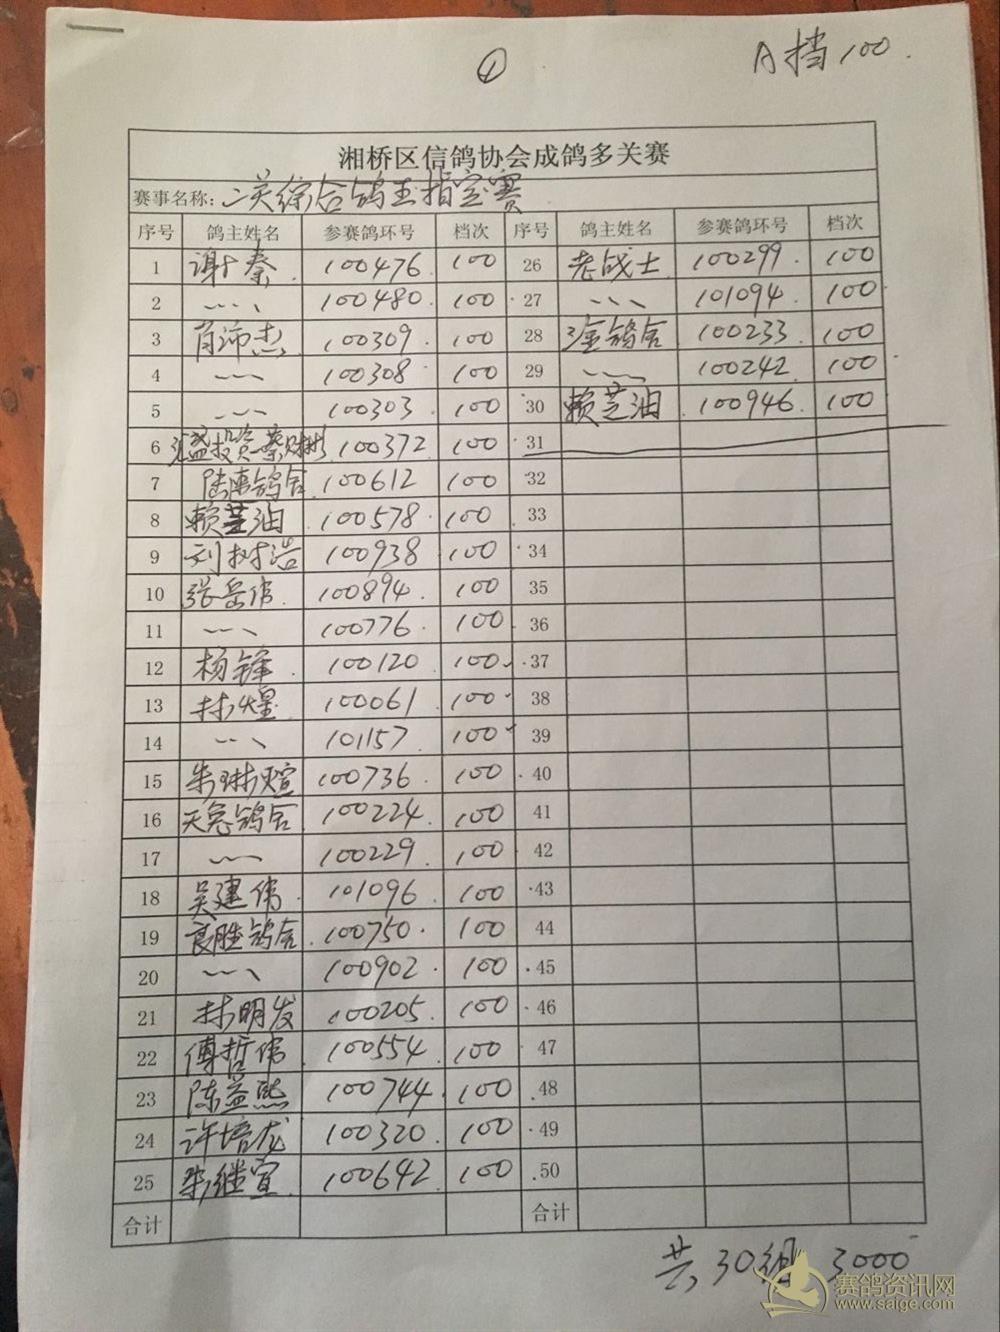 ①
A档100.
湘桥区信鸽协会成鸽多关赛
赛事名称: 二关综合鸽主指定赛
序号 鸽主姓名 参赛鸽环号 档次 序号 鸽主姓名 参赛鸽环号 档次
1 谢秦 100476 100 26 老战士 100299 100
2 100480 100 27 101094 100
3 肖沛杰 100309 100 28 金鸽舍 100233 100
4 100308 100 29 100242 100
5 100303 100 30 赖芝油 100946 100
6 盛投资-蔡财彬 100372 100 31
7 鸽舍 100612 100 32
8 赖芝油 100578 100 33
9 刘树浩 100938 100 34
10 张岳伟 100894 100 35
11 100776 100 36
12 杨锋 100120 100 37
13 林煌 100061 100 38
14 101157 100 39
15 朱琳煊 100736 100 40
16 天兔鸽舍 100224 100 41
17 100229 100 42
18 吴建伟 101096 100 43
19 良胜鸽舍 100750 100 44
20 100902 100 45
21 林明发 100205 100 46
22 傅哲伟 100554 100 47
23 陈益熙 100744 100 48
24 许培龙 100320 100 49
25 继宣 100642 100 50
合计 合计
共30组 3000
赛鸽资讯网
www.saige.com